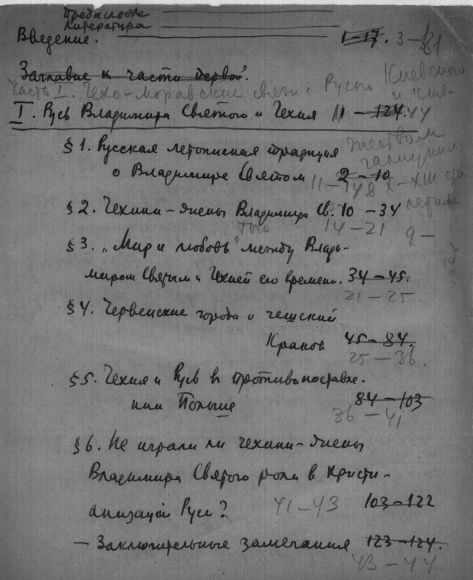 Предисловие
Литература
Введение. 1-17. 3-81
Заглавие к части первой.
Часть I. Чехо-Моравские связи с Русью Киевской
I. Русь Владимира Святого и Чехия 11 - 124. 44
§ 1. Русская летописная традиция
о Владимире Святом 2 - 10
11-14
§ 2. Чехини-жены Владимира Св. 10 - 34
14 - 21
§ 3. „Мир и любовь" между Влади-
миром Святым и Чехией его времени. 34 - 45.
21 - 25.
§ 4. Червенские города и чешский
Краков 45 - 84.
25 - 36.
§ 5. Чехия и Русь в противопоставле-
нии Польше 84 - 103
36 - 41
§ 6. Не играли ли чехини-жены
Владимира Святого роли в христи-
анизации Руси? 41-43 103-122
- Заключительные замечания 123-124.
43 - 44.